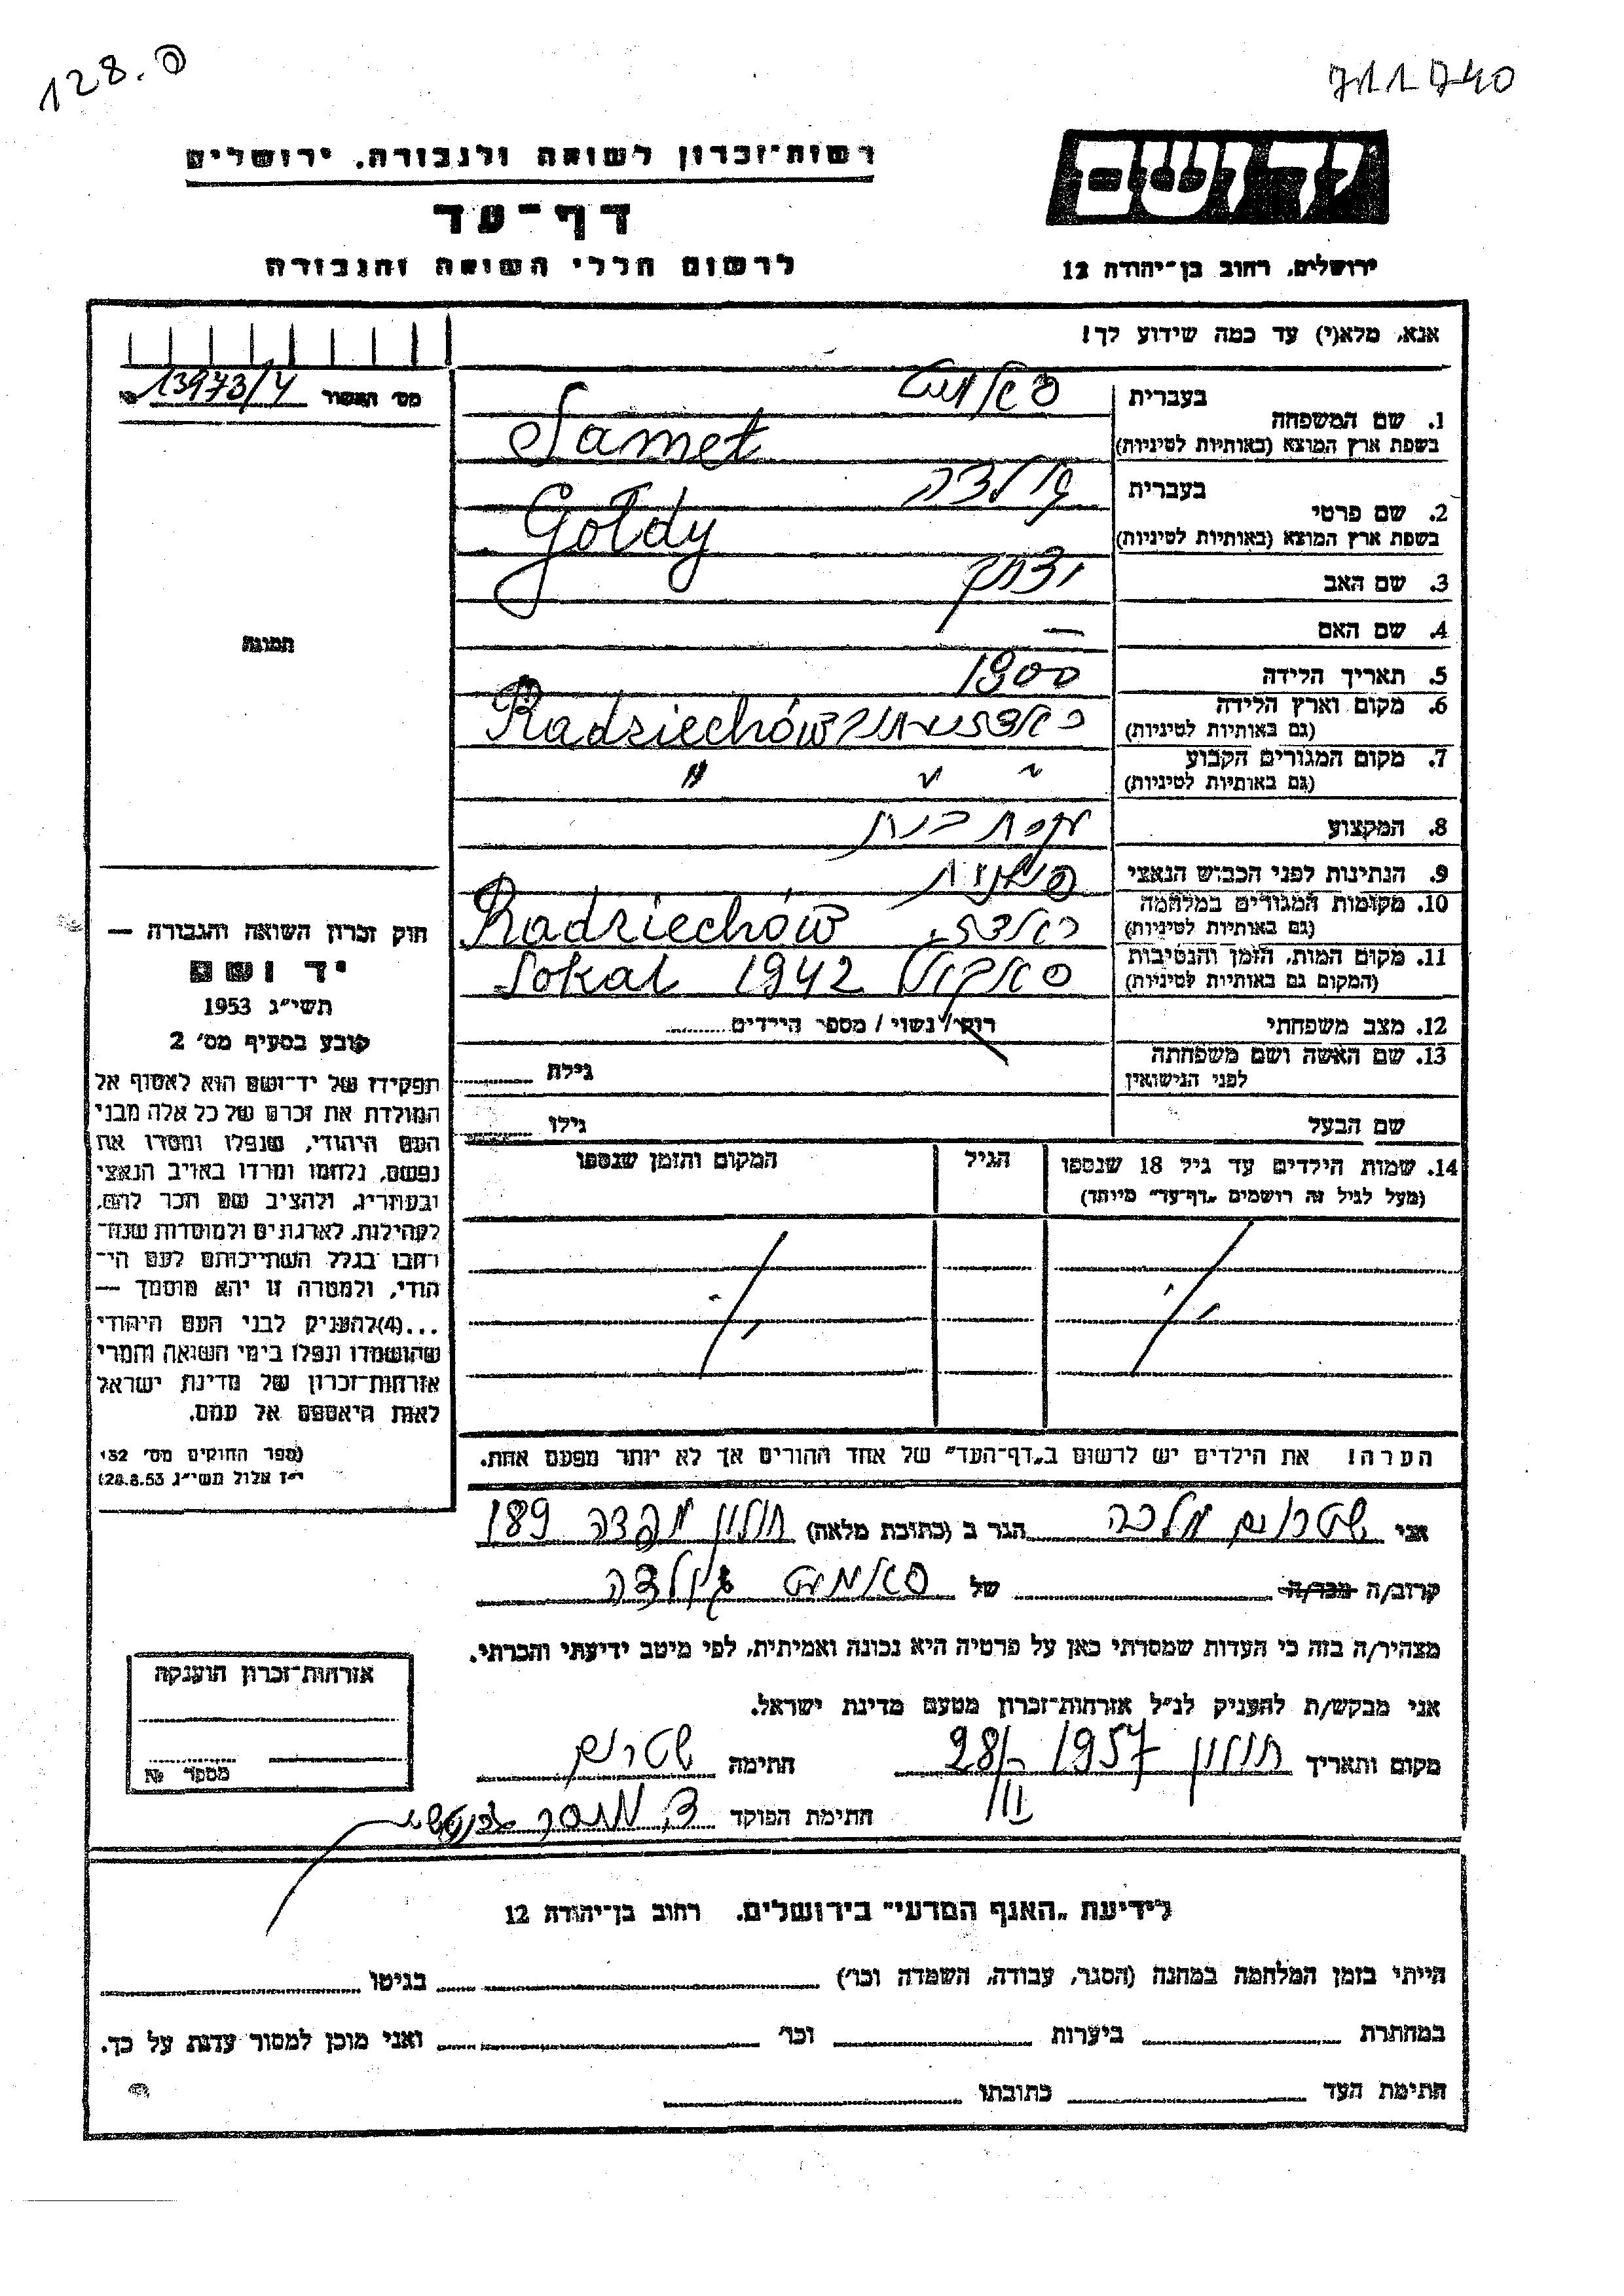 128.ס
711740
רשות־זכרון לשואה ולגבורה, ירושלים
יד ושם
דף־עד
לרשום חללי השואה והגבורה
ירושלים, רחוב בן־יהודה 12
אנא, מלא(י) עד כמה שידוע לך!
מס׳ האשור 13973/4
1. שם המשפחה
בעברית סאמט
בשפת ארץ המוצא (באותיות לטיניות) Samet
2. שם פרטי
בעברית גולדה
בשפת ארץ המוצא (באותיות לטיניות) Goldy
3. שם האב יצחק
4. שם האם —
5. תאריך הלידה 1900
6. מקום וארץ הלידה
(גם באותיות לטיניות) Radziechów
7. מקום המגורים הקבוע " " "
(גם באותיות לטיניות)
8. המקצוע עקרת בית
9. הנתינות לפני הכבוש הנאצי פולנית
10. מקומות המגורים במלחמה
(גם באותיות לטיניות) Radziechów
11. מקום המות, הזמן והנסיבות
(המקום גם באותיות לטיניות) סאקאל 1942 Sokal
12. מצב משפחתי רווק / נשוי / מספר הילדים
13. שם האשה ושם משפחתה
לפני הנישואין
גילה
שם הבעל גילו
14. שמות הילדים עד גיל 18 שנספו
(מעל לגיל זה רושמים „דף־עד״ מיוחד)
הגיל
המקום והזמן שנספו
תמונה
חוק זכרון השואה והגבורה —
יד ושם
תשי״ג 1953
קובע בסעיף מס׳ 2
תפקידו של יד־ושם הוא לאסוף אל
המולדת את זכרם של כל אלה מבני
העם היהודי, שנפלו ומסרו את
נפשם, נלחמו ומרדו באויב הנאצי
ובעוזריו, ולהציב שם וזכר להם,
לקהילות, לארגונים ולמוסדות שנח־
רבו בגלל השתייכותם לעם הי־
הודי, ולמטרה זו יהא מוסמך —
...(4)להעניק לבני העם היהודי
שהושמדו ונפלו בימי השואה והמרי
אזרחות־זכרון של מדינת ישראל
לאות היאספם אל עמם.
(ספר החוקים מס׳ 132
י״ז אלול תשי״ג 28.8.53)
הערה! את הילדים יש לרשום ב„דף־העד״ של אחד ההורים אך לא יותר מפעם אחת.
אני שטרום מלכה הגר ב (כתובת מלאה) חולון 189
קרוב/ה מכר/ה של סאמט גולדה
מצהיר/ה בזה כי העדות שמסרתי כאן על פרטיה היא נכונה ואמיתית, לפי מיטב ידיעתי והכרתי.
אני מבקש/ת להעניק לנ״ל אזרחות־זכרון מטעם מדינת ישראל.
מקום ותאריך חולון 28/III 1957 חתימה שטרום
חתימת הפוקד
אזרחות־זכרון הוענקה
מספר №
לידיעת „האגף המדעי״ בירושלים, רחוב בן־יהודה 12
הייתי בזמן המלחמה במחנה (הסגר, עבודה, השמדה וכו׳) בגיטו
במחתרת ביערות וכו׳ ואני מוכן למסור עדות על כך.
חתימת העד כתובתו